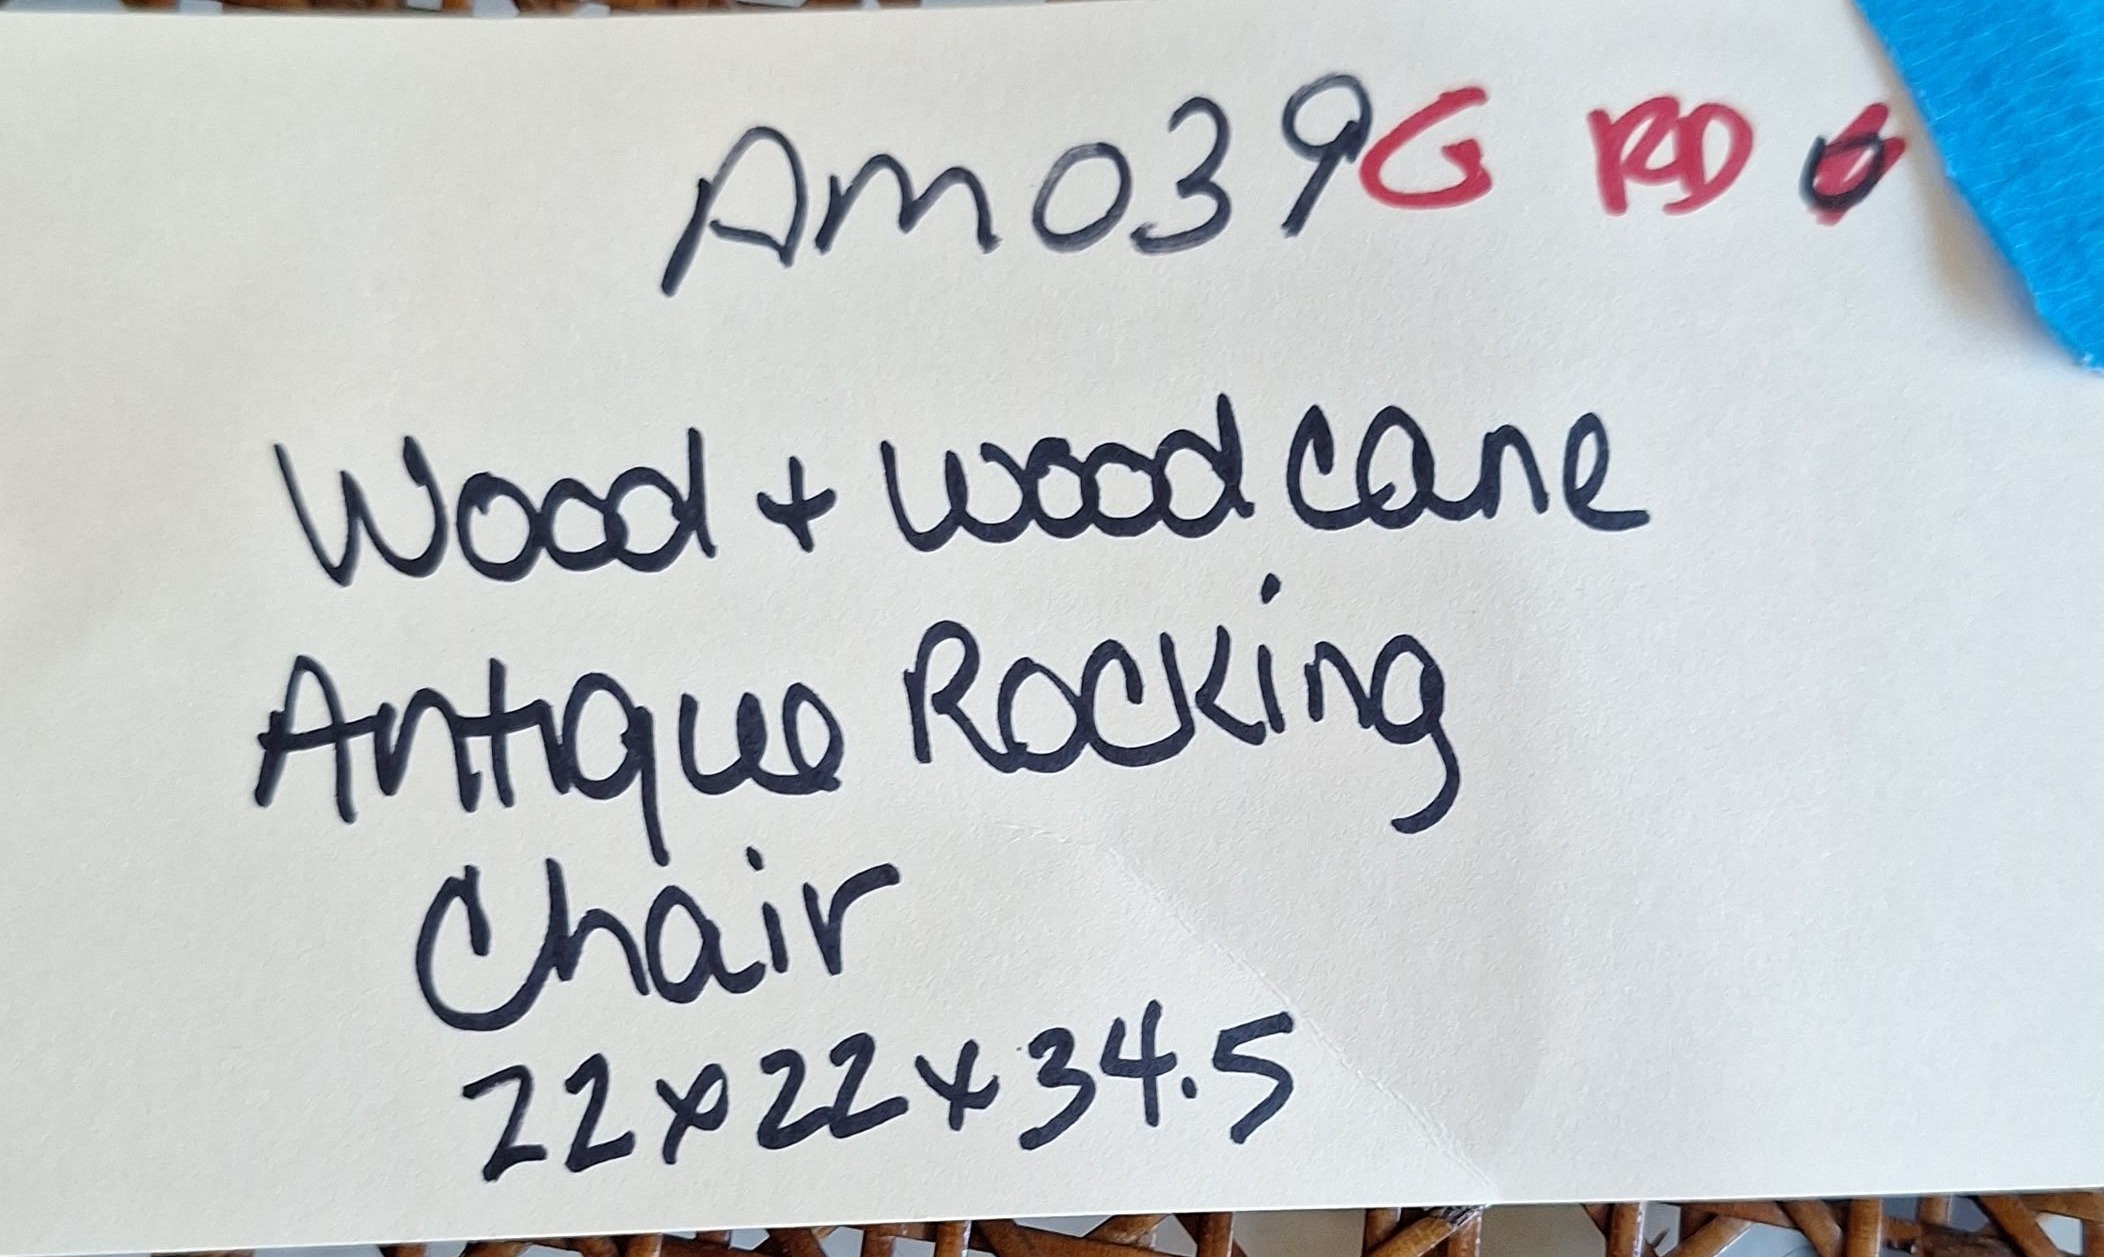 Am039G RD
Wood + wood cane
Antique Rocking
Chair
22x22x34.5